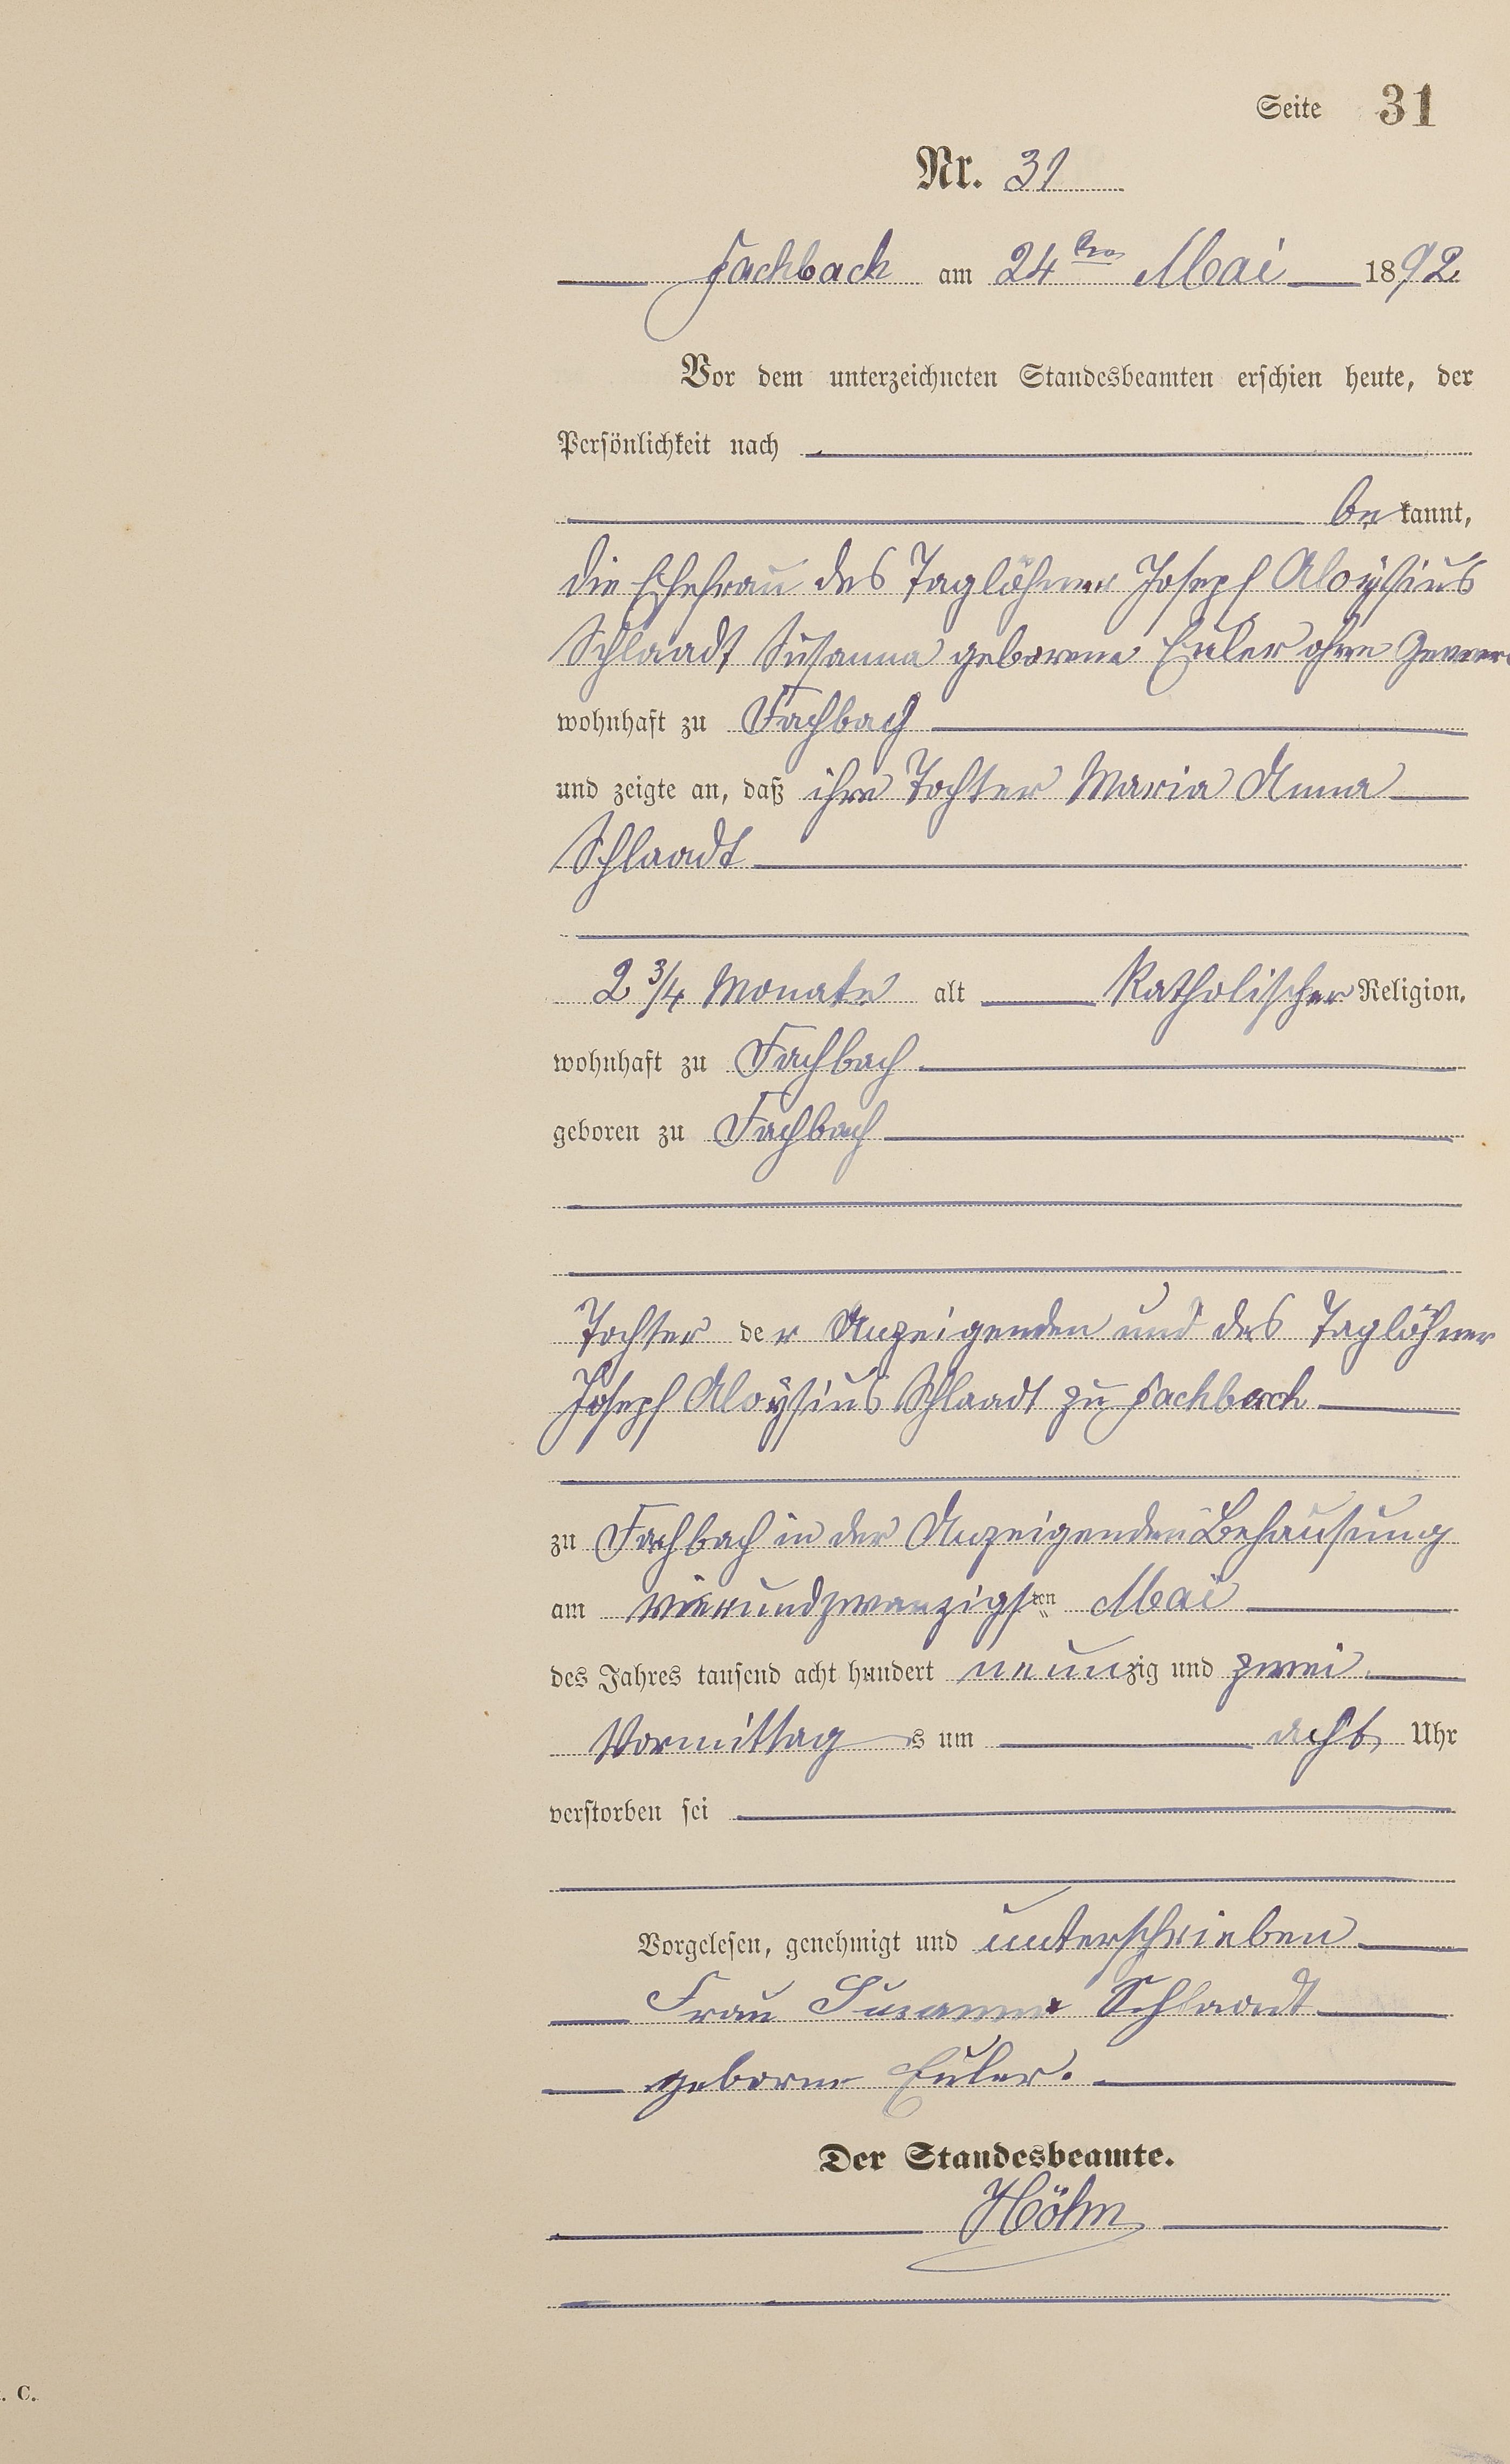 Seite 31
Nr. 31
Fachbach am 24ten Mai 1892.
Vor dem unterzeichneten Standesbeamten erschien heute, der
Persönlichkeit nach
bekannt,
die Ehefrau des Taglöhner Joseph Aloÿsius
Schlaadt Susanna geborene Euler ohne Gewer
wohnhaft zu Fachbach
und zeigte an, daß ihre Tochter Maria Anna
Schlaadt
2 3/4 Monate alt Katholischer Religion,
wohnhaft zu Fachbach
geboren zu Fachbach
Tochter der Anzeigenden und des Taglöhner
Joseph Aloÿsius Schlaadt zu Fachbach
zu Fachbach in der Anzeigenden Behausung
am vierundzwanzigsten Mai
des Jahres tausend acht hundert neunzig und zwei
Vormittags um acht Uhr
verstorben sei
Vorgelesen, genehmigt und unterschrieben
Frau Susanna Schlaadt
geborne Euler.
Der Standesbeamte.
Höhn
. C.